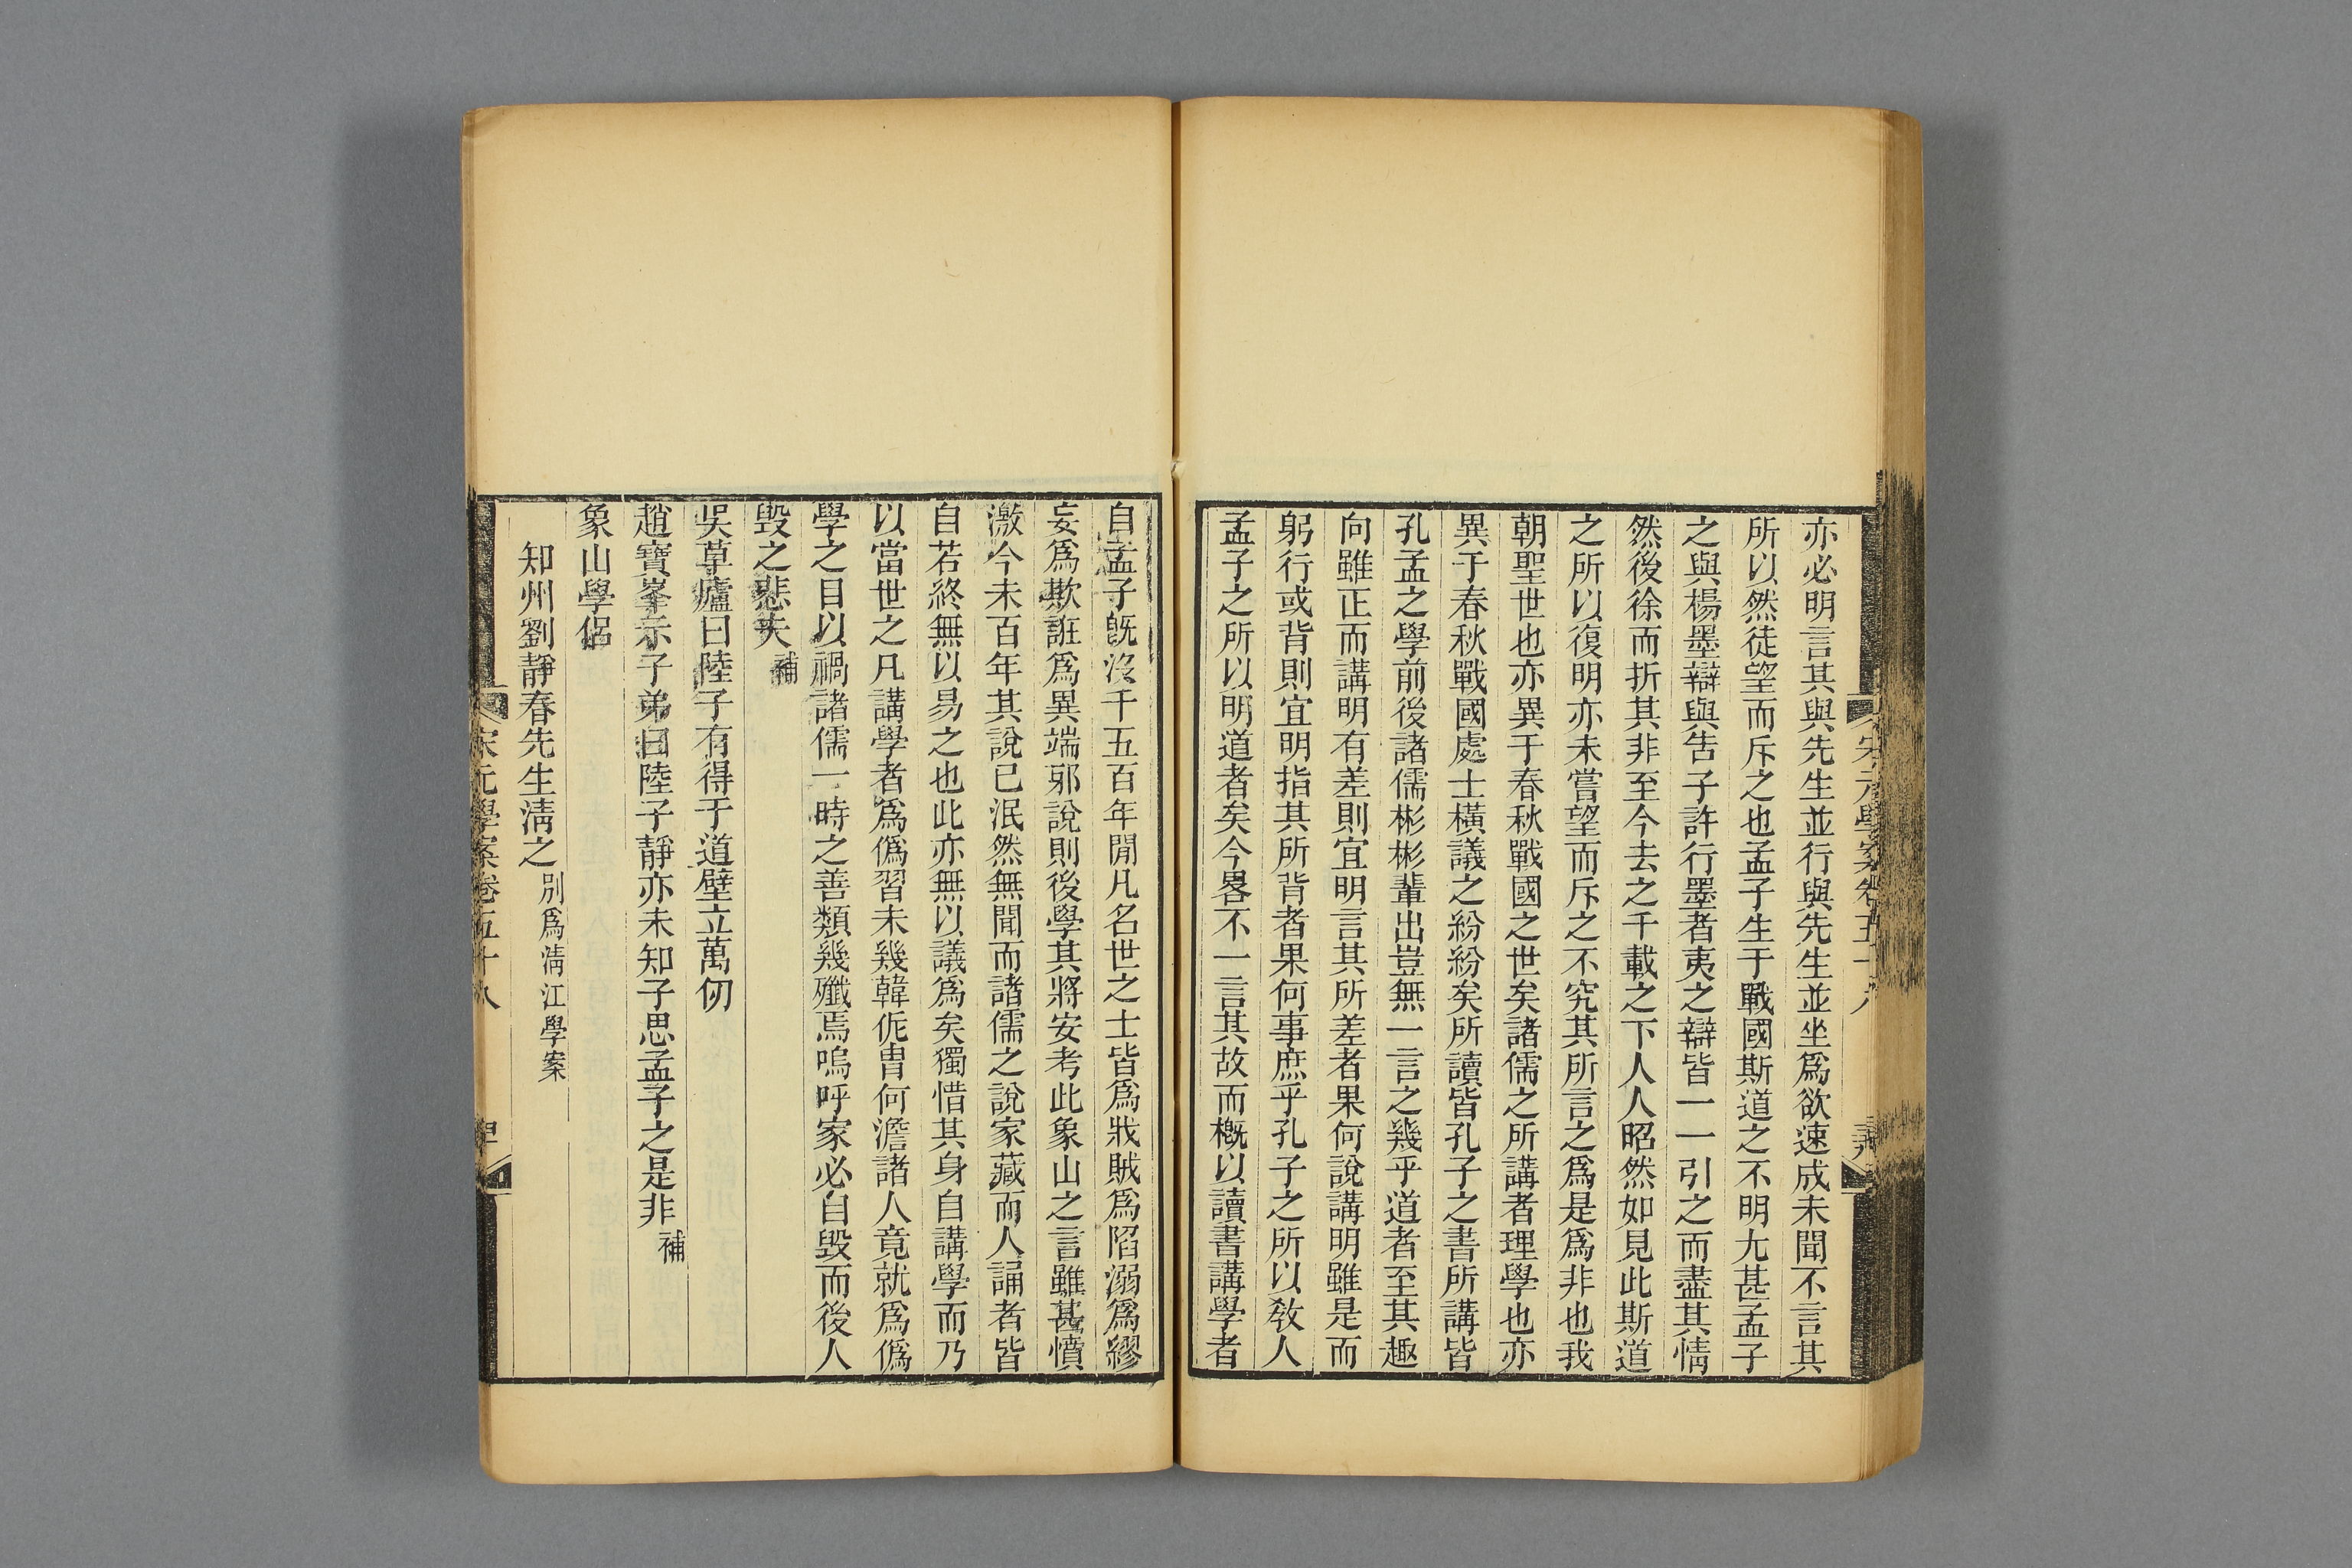 亦必明言其與先生並行與先生並坐爲欲速成未聞不言其
所以然徒望而斥之也孟子生于戰國斯道之不明尤甚孟子
之與楊墨辯與告子許行墨者夷之辯皆一一引之而盡其情
然後徐而折其非至今去之千載之下人人昭然如見此斯道
之所以復明亦未嘗望而斥之不究其所言之爲是爲非也我
朝聖世也亦異于春秋戰國之世矣諸儒之所講者理學也亦
異于春秋戰國處士橫議之紛紛矣所讀皆孔子之書所講皆
孔孟之學前後諸儒彬彬輩出豈無一言之幾乎道者至其趣
向雖正而講明有差則宜明言其所差者果何說講明雖是而
躬行或背則宜明指其所背者果何事庶乎孔子之所以敎人
孟子之所以明道者矣今畧不一言其故而槪以讀書講學者
自孟子旣沒千五百年閒凡名世之士皆爲戕賊爲陷溺爲繆
妄爲欺誑爲異端邪說則後學其將安考此象山之言雖甚憤
激今未百年其說已泯然無聞而諸儒之說家藏而人誦者皆
自若終無以易之也此亦無以議爲矣獨惜其身自講學而乃
以當世之凡講學者爲僞習未幾韓侂胄何澹諸人竟就爲僞
學之目以禍諸儒一時之善類幾殲焉嗚呼家必自毀而後人
毀之悲夫補
吳草廬曰陸子有得于道壁立萬仞
趙寶峯示子弟曰陸子靜亦未知子思孟子之是非補
象山學侶
知州劉靜春先生淸之別爲淸江學案
宋元學案卷五十八